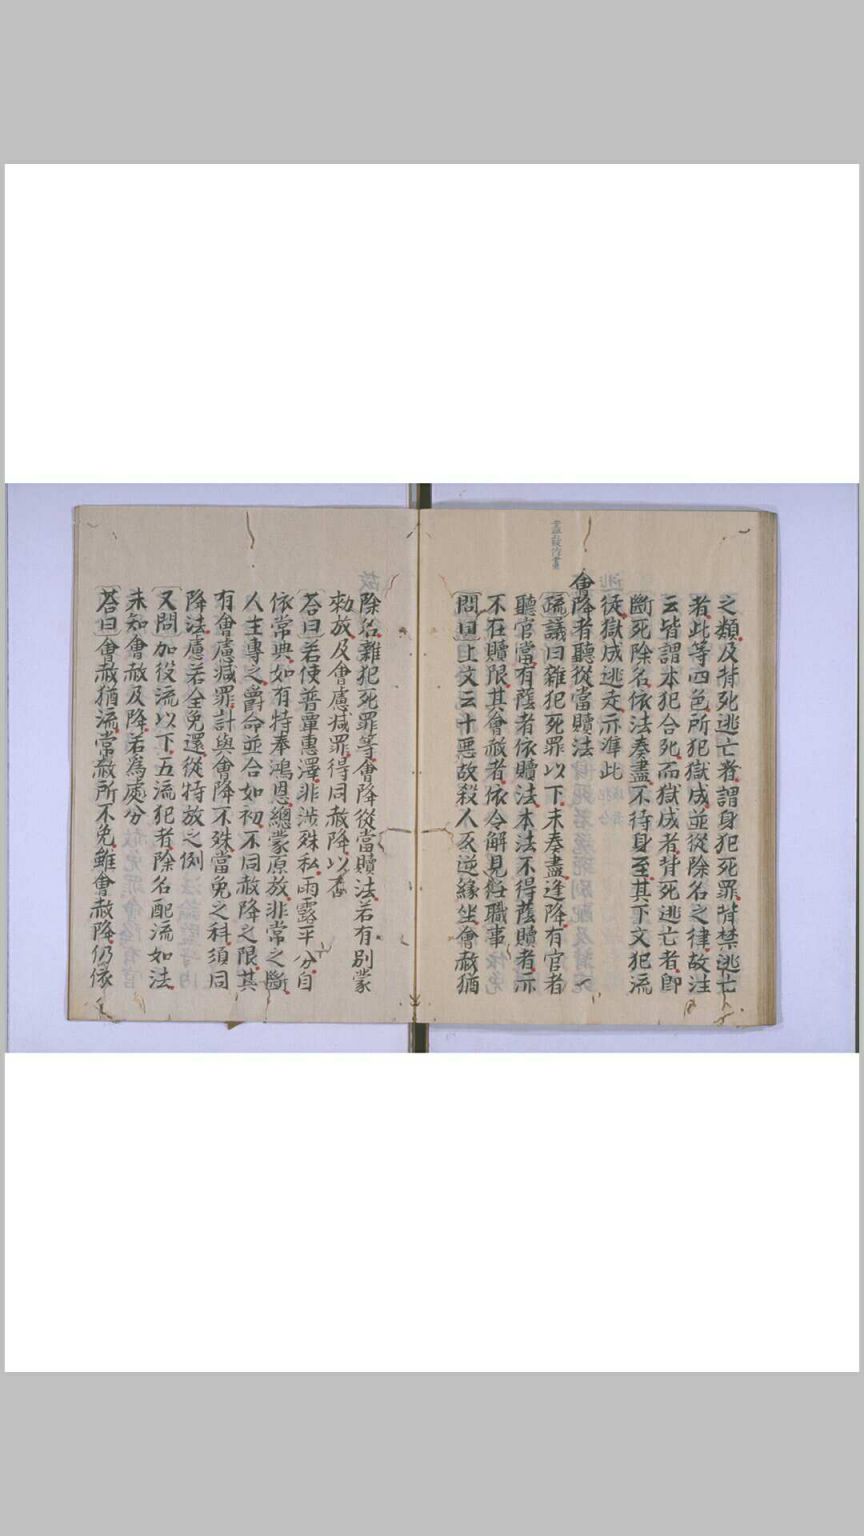 之類及背死逃亡者謂身犯死罪背禁逃亡
者此等四色所犯獄成並從除名之律故注
云皆謂本犯合死而獄成者背死逃亡者即
斷死除名依法奏盡不待身至其下文犯流
徒獄成逃走亦準此
會降者聽從當贖法
疏議曰雜犯死罪以下未奏盡逢降有官者
聽官當有蔭者依贖法本法不得蔭贖者亦
不在贖限其會赦者依令解見任職事
問曰上文云十惡故殺人反逆緣坐會赦猶
除名雜犯死罪等會降從當贖法若有別蒙
勑放及會慮減罪得同赦降以否
荅曰若使普覃惠澤非涉殊私雨露平分自
依常典如有特奉鴻恩總蒙原放非常之斷
人主專之爵命並合如初不同赦降之限其
有會慮減罪計與會降不殊當免之科須同
降法慮若全免還從特放之例
又問加役流以下五流犯者除名配流如法
未知會赦及降若爲處分
荅曰會赦猶流常赦所不免雖會赦降仍依